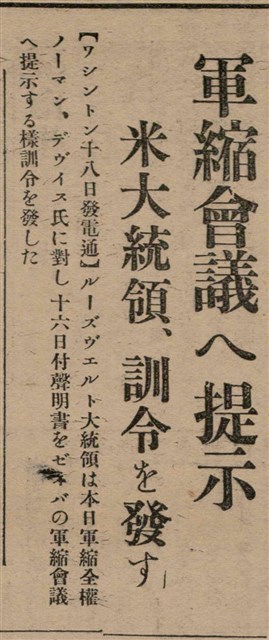 軍縮會議へ提示
米大統領、訓令を發す
【ワシントン十八日發電通】ルーズヴェルト大統領は本日軍縮全權
ノーマン、デヴィス氏に對し十六日付聲明書をゼネバの軍縮會議
へ提示する樣訓令を發した